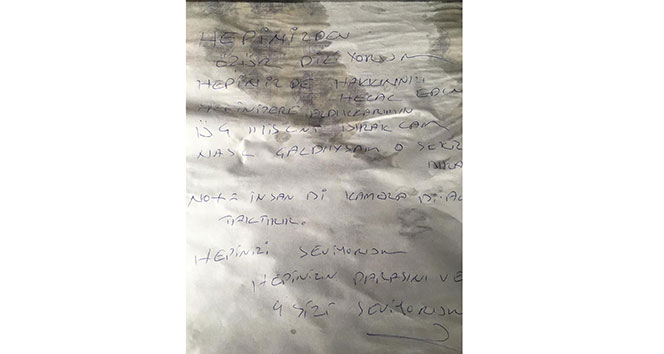 HEPİNİZDEN
ÖZÜR DİLİYORUM
HEPİNİZ DE HAKKINNIZI
HELAL EDİN
HEPİNİZERE ALDIKLARIMIN
ÜÇ MİSLİNİ BIRAKCAM
NASIL ÇALDIYSAM O ŞEKİL
NOT= İNSAN Bİ KAMERA
TAKTIRIR.
HEPİNİZİ SEVİYORUM
HEPİNİZİN PARASINI VE
SİZİ SEVİYORUM